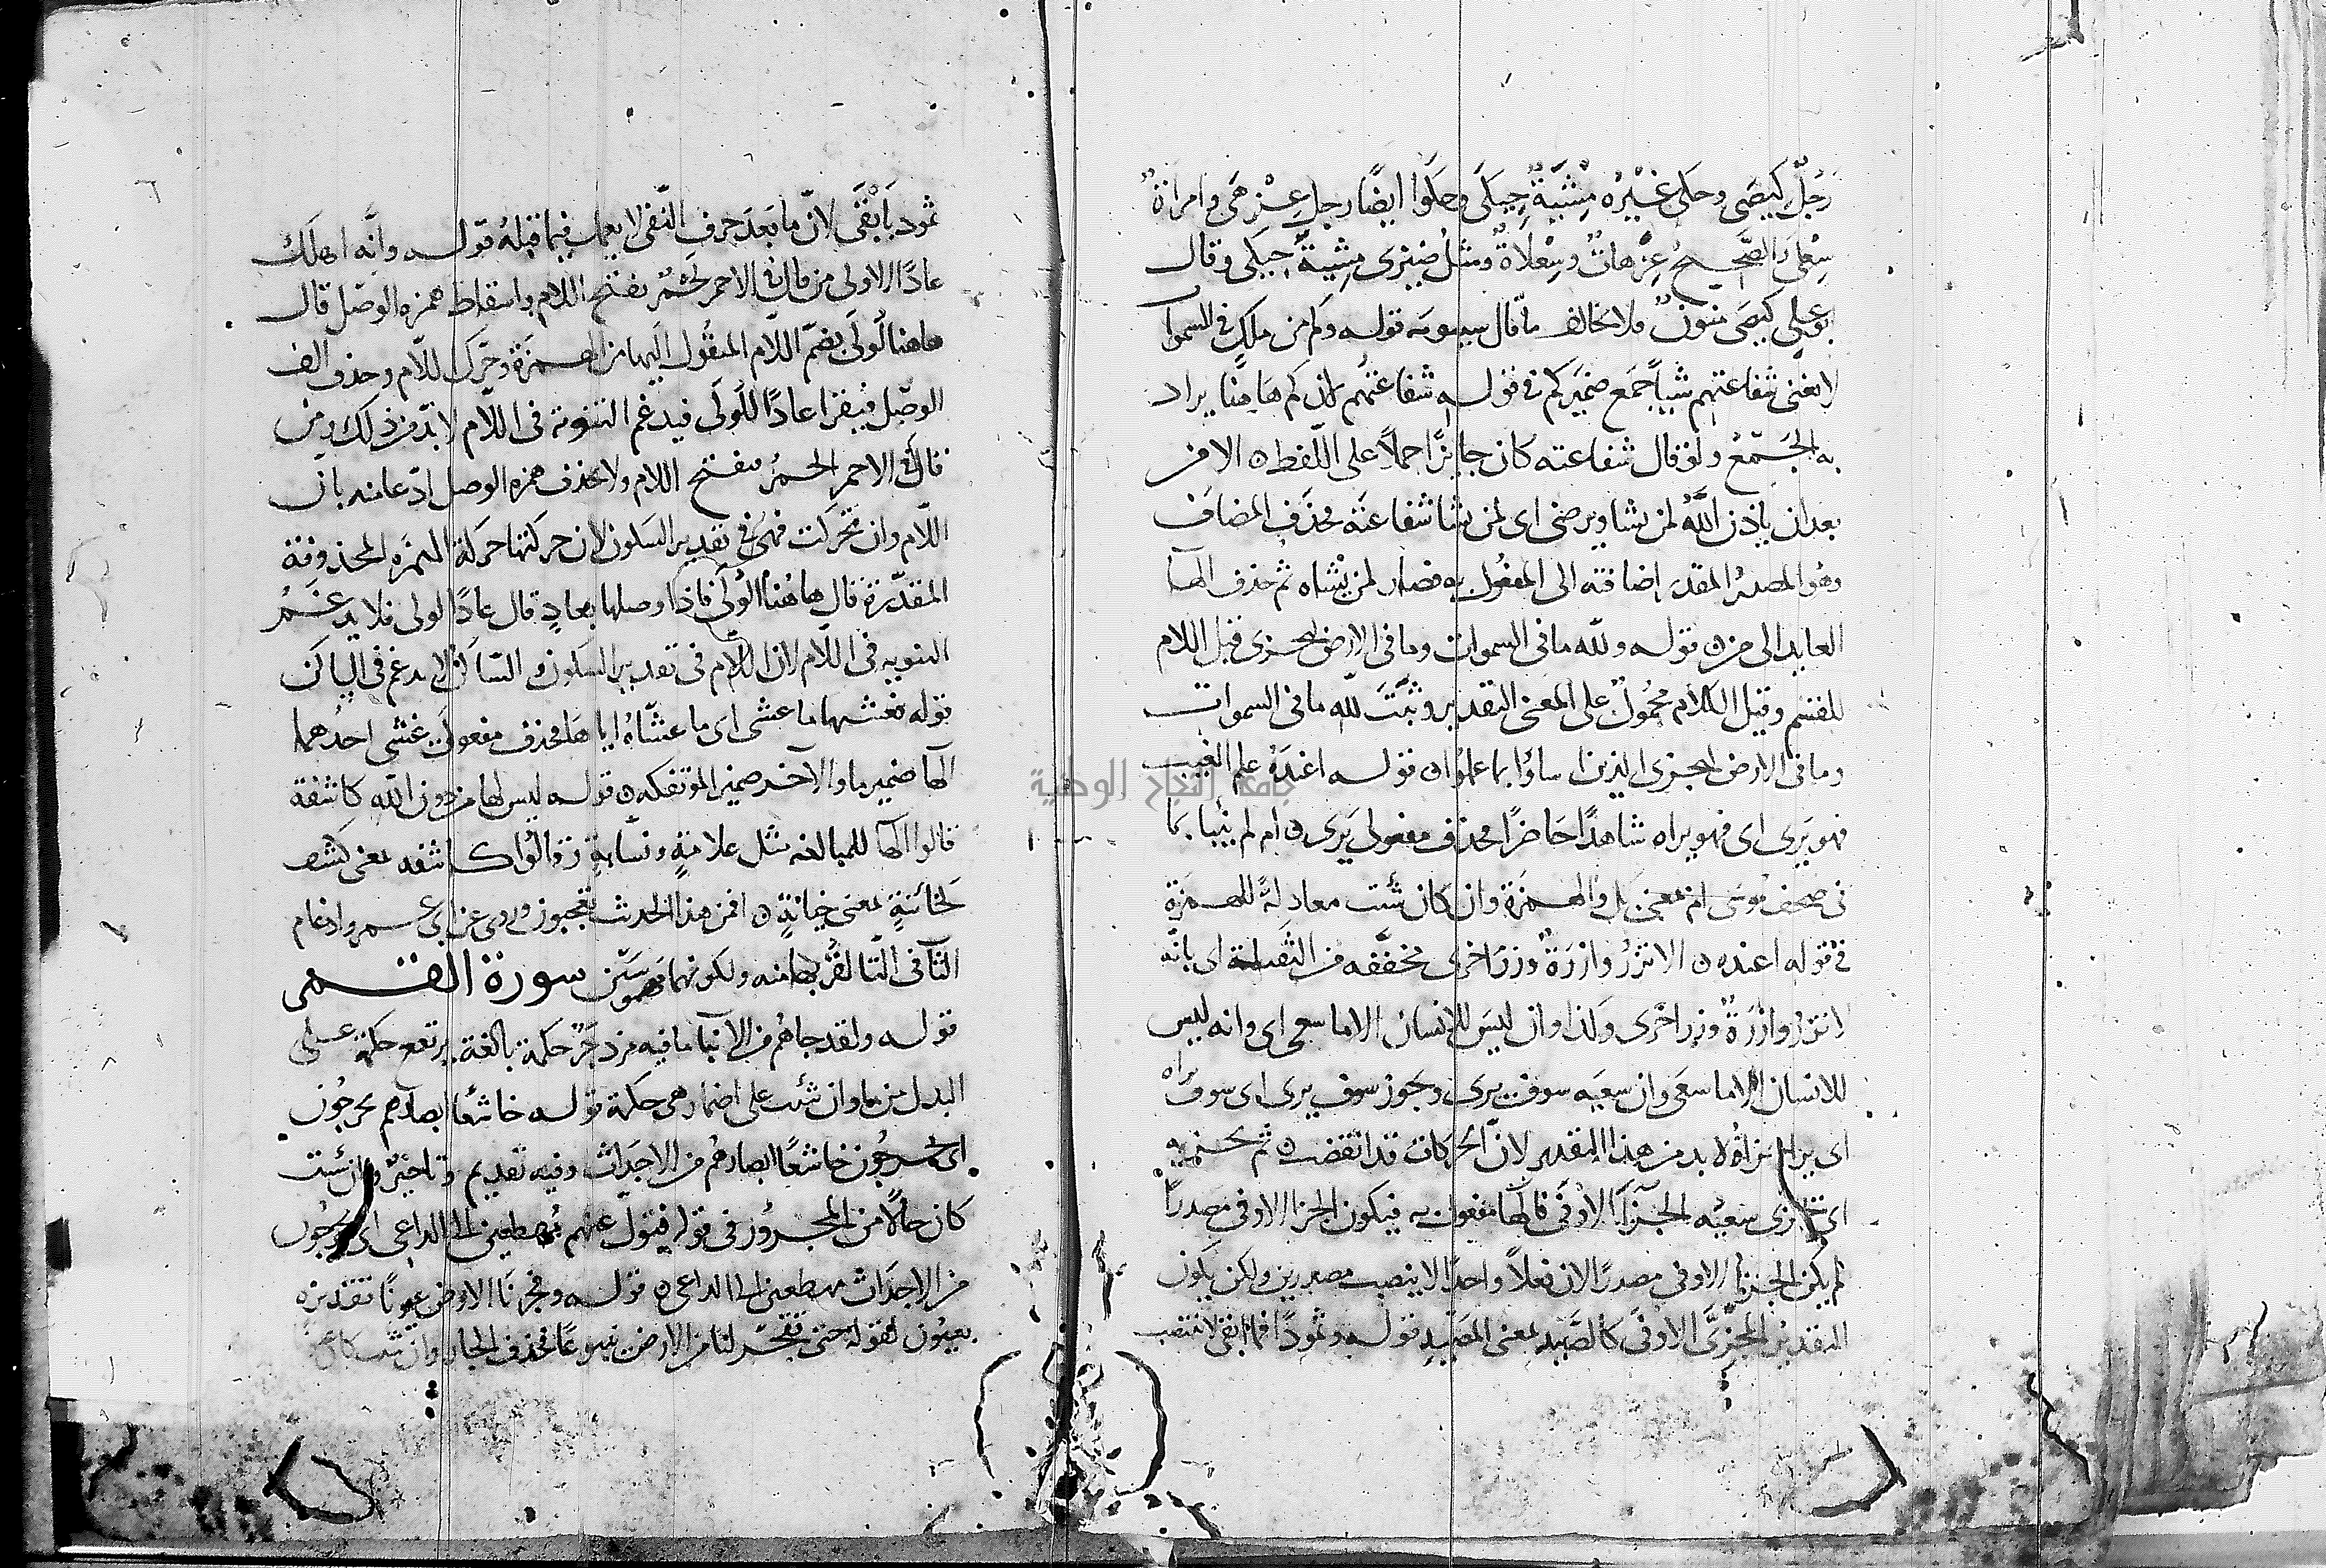 رَجُلٌ كِيصَى وحكى غيْرُه مِشْيَةٌ حِيكَى وحكوا ايضًا رجل عِزْهَى وامراةٌ
سِعْلَى والصَّحيحُ عِزْهاةٌ وسِعْلاةٌ ومثلُ ضيزى مِشْيةٌ حِيكى وقال
ابو علي كيصَى منونٌ فلا يخالف ما قال سيبويه قوله وكم من ملك في السموات
لا تغنى شفاعتهم شيئًا جمَع ضميَر كم في قوله شفاعتهم لان كم هاهنا يراد
به الجَمْعُ ولو قال شفاعته كان جايزًا حملًا على اللّفظ ن الا من
بعد ان ياذن اللّهُ لمن يشا ويرضى اى لمن يشا شفاعته فحذف المضاف
وهو المصدرُ المقدر إضافته الى المفعول به فصار لمن يشاه ثم حذف الها
العايد الى من ن قوله ولله ما فى السموات وما فى الارض ليجزى قيل اللام
للقسم وقيل الكلام محمُولٌ على المعنى التقدير وثبَتَ للّه ما فى السموات
وما فى الارض ليجزى الذين اساؤا بما عملوا ن قوله اعندَهُ علم الغيب
فهو يَرى اى فهو يراه شاهدًا حَاضرًا فحذف مفعولى يَرى ن ام لم ينبا بما
فى صحف موسى ام بمعنى بل والهمزة وان كان شئت معادلةً للهمزة
فى قوله اعنده ن الا تزرُ وازرَةٌ وزرَ اخرى مخففه من الثقيلة اى بانّه
لا تزرُ وازرَةٌ وزر اخرى وكذا وان ليسَ للانسان الا ما سعى اى وانه ليس
للانسان الا ما سعَى وان سعيَه سوف يرى وجَوز سوف يرى اى سوف يراه
اى يرا جزاؤه لا بد من هذا التقدير لانّ الحركات قد انقضت ن ثم يجزيه
اى يجزى سعيُه الجزآءَ الاوفى فالها مفعول به فيكون الجزا الاوفى مصدرًا
لم يكن الجزا الاوفى مصدرًا لان فعلًا واحدًا لا ينصب مصدرين ولكن يكون
التقدير المجزىَّ الاوفى كالصَّيد بمعنى المَصِيد قوله وثمودًا فما ابقى لا ينتصب
ثمود بَأبْقَى لانّ ما بَعدَ حرف النّفى لا يعمل فيما قبلهُ قوله وانَّه اهلَك
عادًا الاولى من قال فى الاحمر لَحْمَرُ بفتح اللام واسقاط همزه الوصل قال
هاهنا لُولَى بضمّ اللّام المنقُول اليها من الهمزَة وحَرّك اللّام وحذف الف
الوصْل فيُقرا عادًا لُّولَى فيدغم التنوين فى اللّام لا بدّ من ذلك ومَن
قال فى الاحمر الحَمرُ بفتح اللام ولا يحذف همزه الوصل ادّعا منه بانّ
اللّام وان تحركت فهىَ فى تقدير السَكون لان حركتها حركة الهمزَه المحذوفة
المقدّرة قال هاهُنا اَلُولَى فاذا وصلها بعادٍ قال عادًا لولى فلا يدغمُ
التنوين فى اللّام لان اللّام فى تقدير السكون والسّاكن لا يدغم فى الساكن
قوله فغشيها ما غشى اى ما غشّاهُ اياها فحذف مفعولى غشى احدُهما
الها ضمير ما والآخر ضمير المؤتفكه ن قوله ليس لها من دون الله كاشفة
قالوا الها للمبالغه مثل علامةٍ ونسّابةٍ وقالوا كاشفه بمعنى كشف
كخائنةٍ بمعنى خيانةٍ ن افمن هذا الحديث تعجبون روى عن ابى عمرو ادغام
الثا فى التّا لقُربها منه ولكونهما مهموسَيْن سورة القمر
قوله ولقد جاهُم من الانبآ ما فيه مزدجَرٌ حكمة بالغة يرتفع حكمة على
البدل من ما وان شئت على اضمار هى حكمة قوله خاشعًا ابصارهم يخرجُون
اى يخرجُون خاشعًا ابصارهُم من الاجدَاث وفيه تقديم وتاخيرٌ وان شئت
كان حالًا من المجرُور فى قوله فتولّ عنهم مُهطعين الى الداعى اى يخرجُون
من الاجدَاث مهطعين الى الداعى ن قوله وفجرنَا الارض عيونًا تقديره
بعيُون لقوله حتى تفجّر لنا من الارض ينبوعًا فحذف الجار وان شئت كان